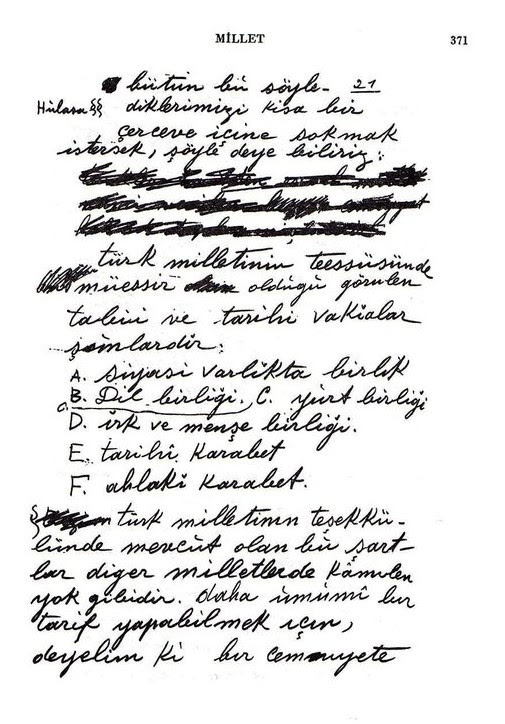 MİLLET 371
bütün bu söyle- 21
Hülasa §§ diklerimizi kısa bir
çerceve içine sokmak
istersek, şöyle deye biliriz:
türk milletinin teessüsünde
müessir olduğu görülen
tabii ve tarihi vakialar
şunlardır:
A. siyasi varlıkta birlik
B. Dil birliği. C. yurt birliği
D. ırk ve menşe birliği.
E. tarihî karabet
F. ahlaki karabet.
§ türk milletinin teşekkü-
lünde mevcut olan bu şart-
lar diger milletlerde kâmilen
yok gibidir. daha umumî bir
tarif yapabilmek için,
deyelim ki bir cemiyete